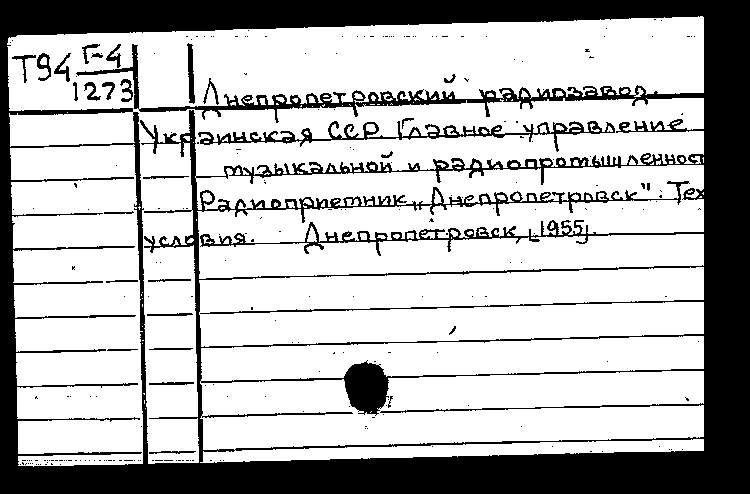 Т94 Г-4
1273
Днепропетровский радиозавод.
Украинская ССР. Главное управление
музыкальной и радиопромышленност
Радиоприемник „Днепропетровск". Тех
условия. Днепропетровск, [1955].